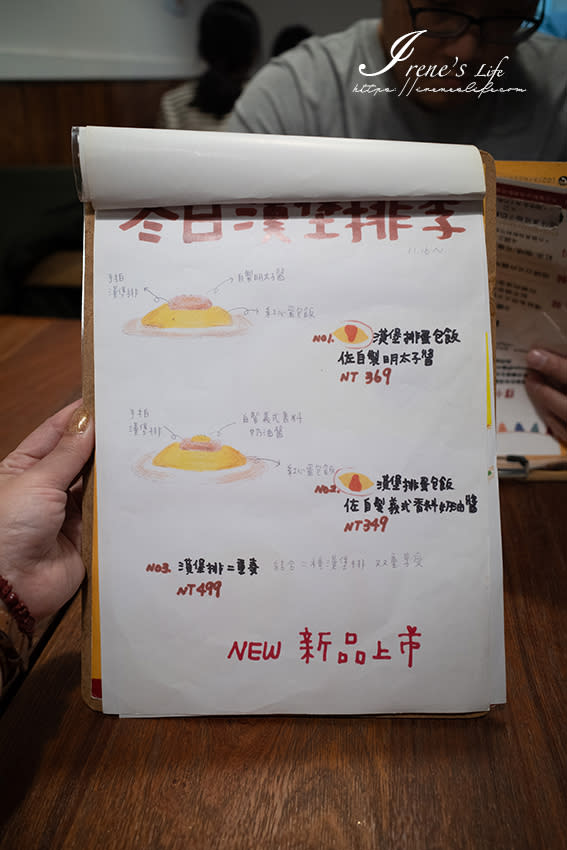 Irene's Life
https://irenelife.com
今日漢堡排季
11.16~
手拍
漢堡排
自製明太子醬
紅心蛋包飯
NO1. 漢堡排蛋包飯
佐自製明太子醬
NT 369
手拍
漢堡排
自製義式香料
奶油醬
紅心蛋包飯
NO2. 漢堡排蛋包飯
佐自製義式香料奶油醬
NT349
NO3. 漢堡排二重奏 結合二種漢堡排 双重享受
NT499
NEW 新品上市